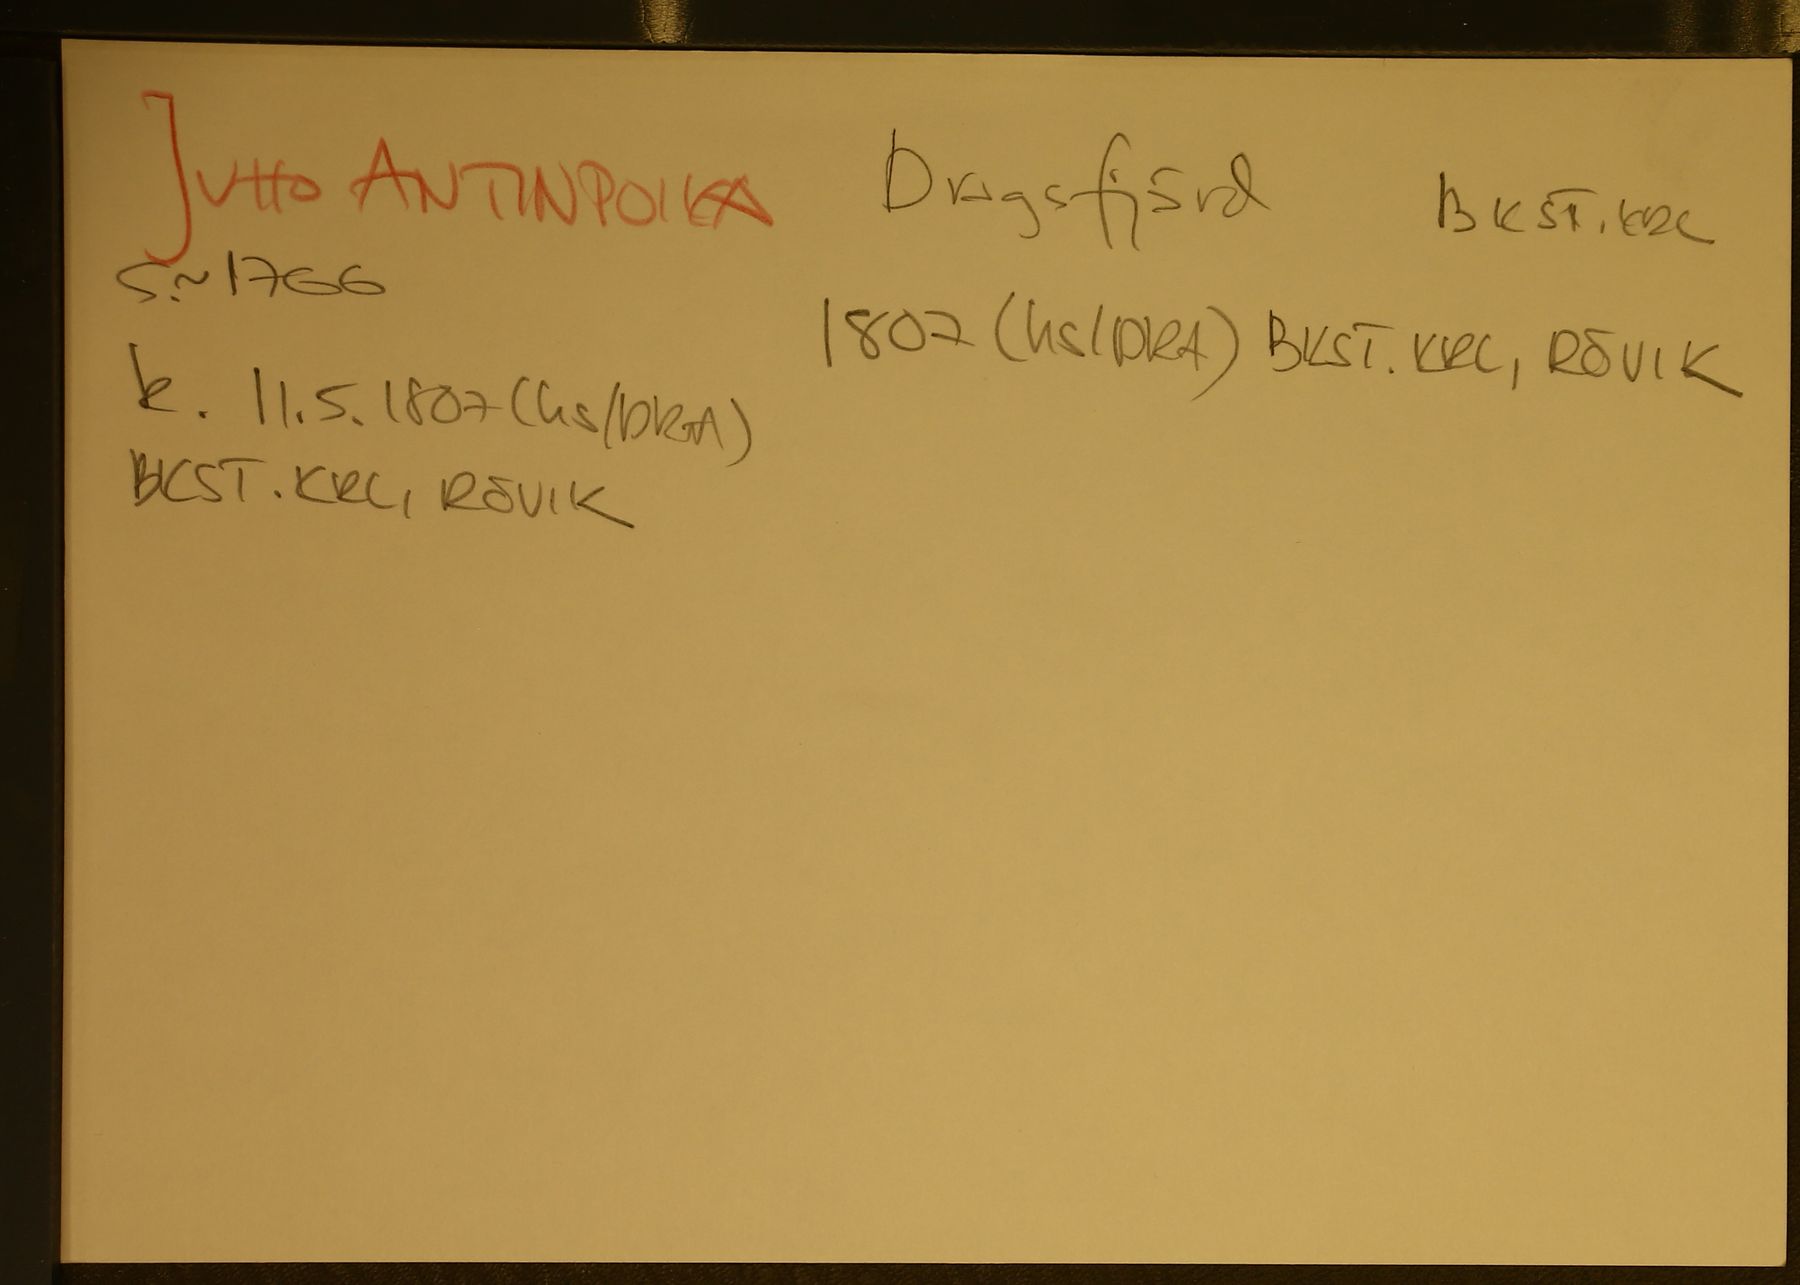 JUHO ANTINPOIKA
Dragsfjärd
BKST. KRL
S. ~ 1766
1807 (hs/DRA) BKST. KRL, RÖVIK
k. 11.5.1807 (hs/DRA)
BKST. KRL, RÖVIK